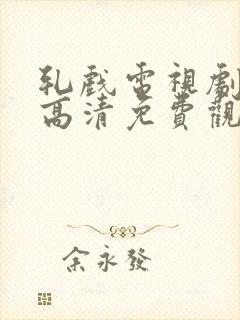 乳戲電視劇
高清免費觀
余永發